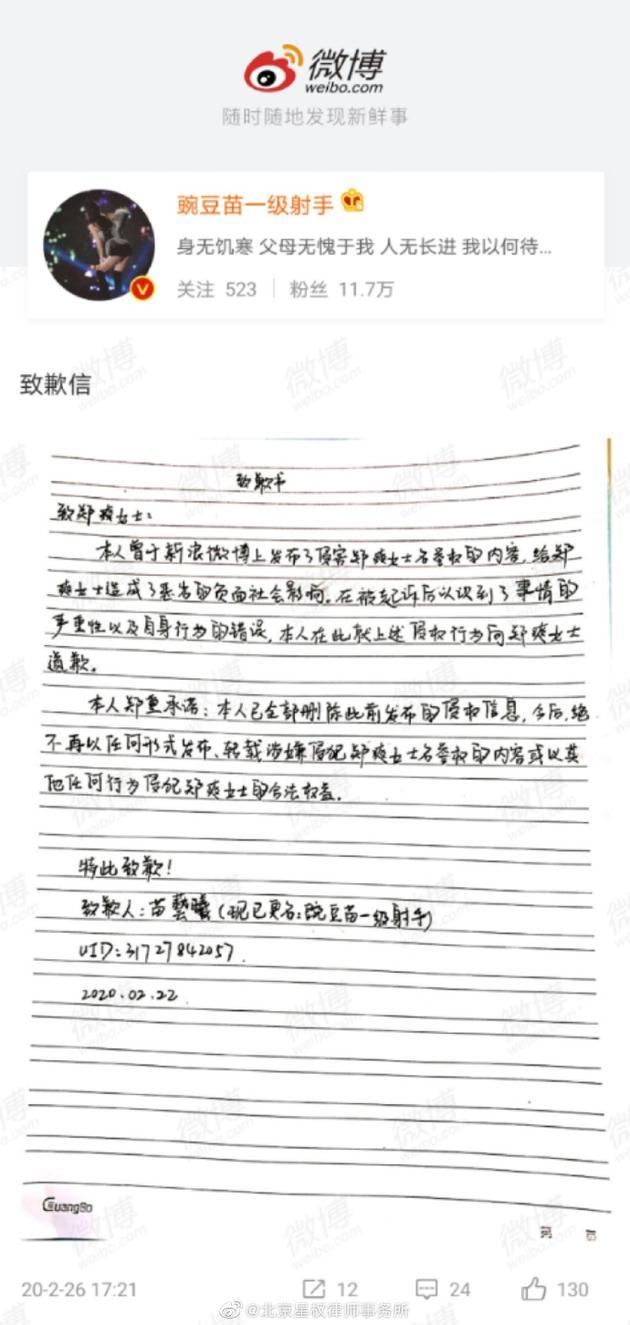 微博
weibo.com
随时随地发现新鲜事
豌豆苗一级射手
身无饥寒 父母无愧于我 人无长进 我以何待...
关注 523 粉丝 11.7万
致歉信
致歉书
致郑爽女士：
本人曾于新浪微博上发布了侵害郑爽女士名誉权的内容，给郑
爽女士造成了恶劣的负面社会影响。在被起诉后认识到了事情的
严重性以及自身行为的错误，本人在此就上述侵权行为向郑爽女士
道歉。
本人郑重承诺：本人已全部删除此前发布的侵权信息，今后，绝
不再以任何形式发布、转载涉嫌侵犯郑爽女士名誉权的内容或以其
他任何行为侵犯郑爽女士的合法权益。
特此致歉！
致歉人：苗藝曦（现已更名：豌豆苗一级射手）
UID：31727842057
2020.02.22
GuangBo
第 页
20-2-26 17:21 12 24 130
@北京星权律师事务所